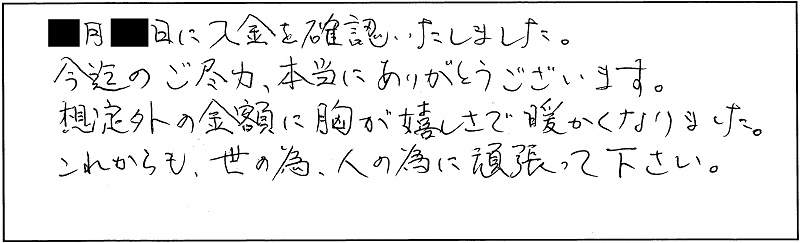 ■月■日に入金を確認いたしました。
今迄のご尽力、本当にありがとうございます。
想定外の金額に胸が嬉しさで暖かくなりました。
これからも、世の為、人の為に頑張って下さい。